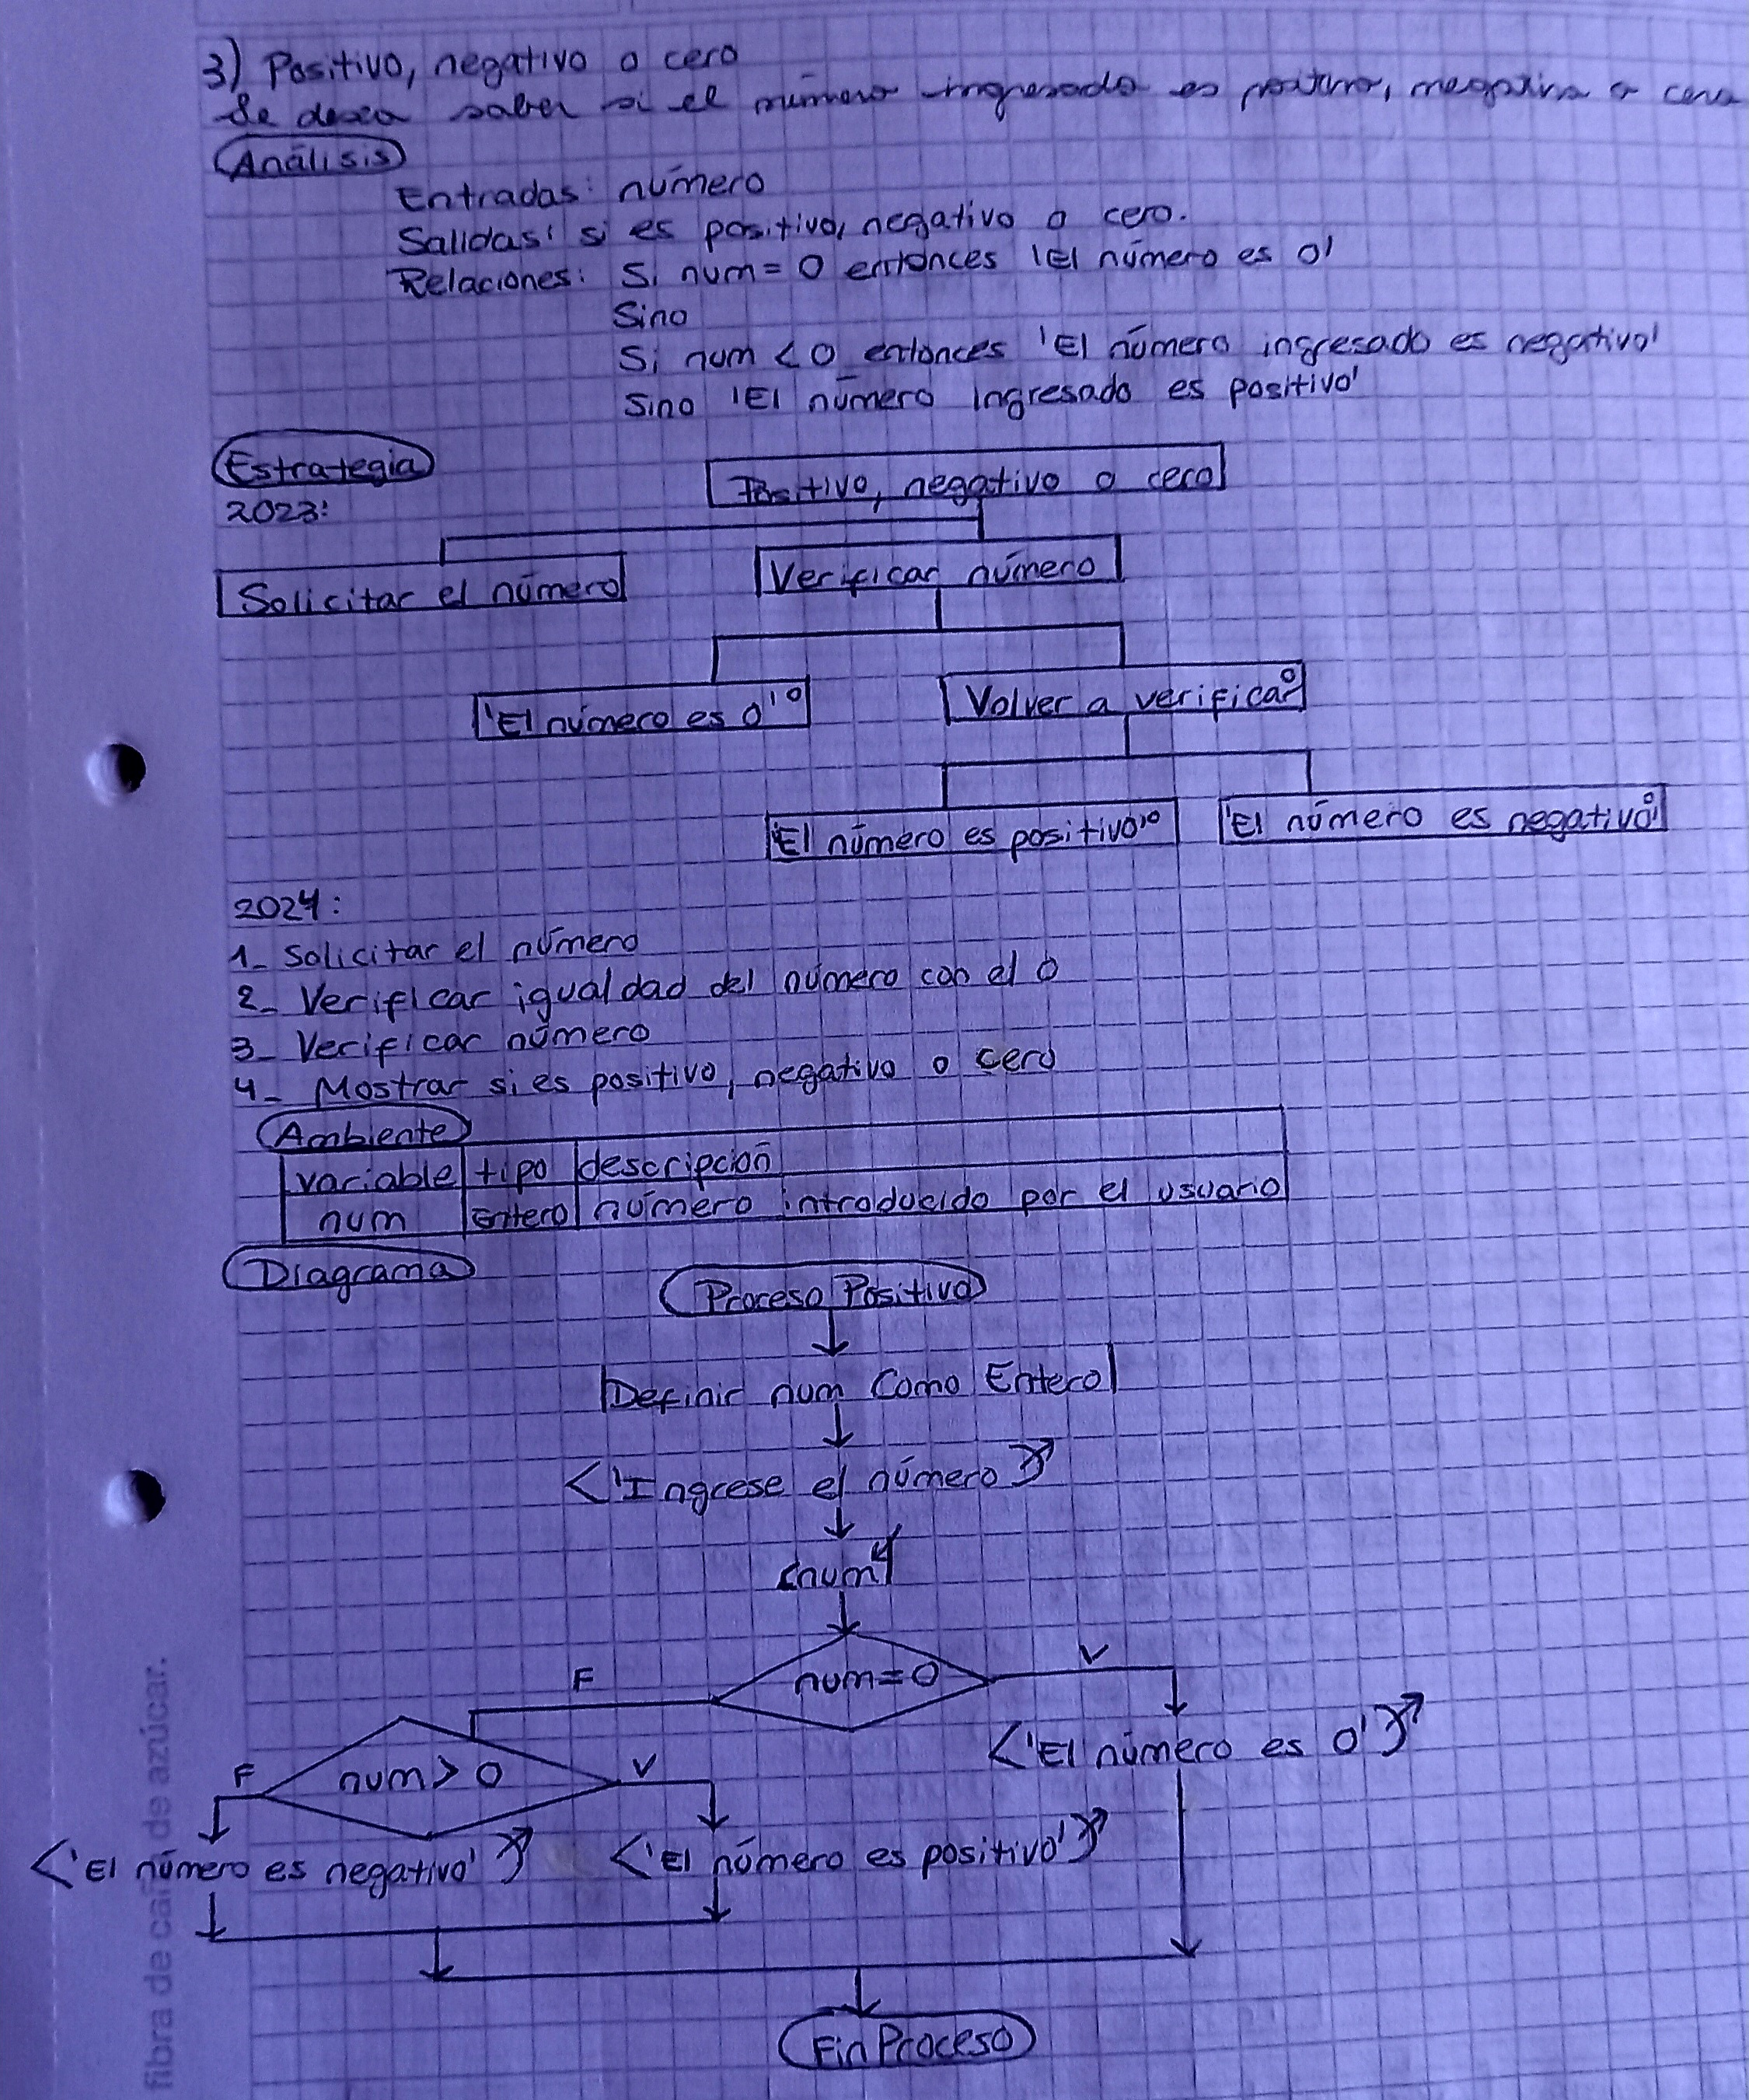 3) Positivo, negativo o cero
Se desea saber si el número ingresado es positivo, negativo o cero
Análisis
Entradas: número
Salidas: si es positivo, negativo o cero.
Relaciones: Si num = 0 entonces 'El número es 0'
Sino
Si num < 0 entonces 'El número ingresado es negativo'
Sino 'El número ingresado es positivo'
Estrategia
Positivo, negativo o cero
2023:
Solicitar el número
Verificar número
'El número es 0' º
Volver a verificar º
'El número es positivo' º
'El número es negativo' º
2024:
1_ Solicitar el número
2_ Verificar igualdad del número con el 0
3_ Verificar número
4_ Mostrar si es positivo, negativo o cero
Ambiente
variable tipo descripción
num entero número introducido por el usuario
Diagrama
Proceso Positivo
Definir num Como Entero
'Ingrese el número'
num
num=0
F
V
'El número es 0'
num > 0
F
V
'El número es negativo'
'El número es positivo'
FinProceso
fibra de caña de azúcar.